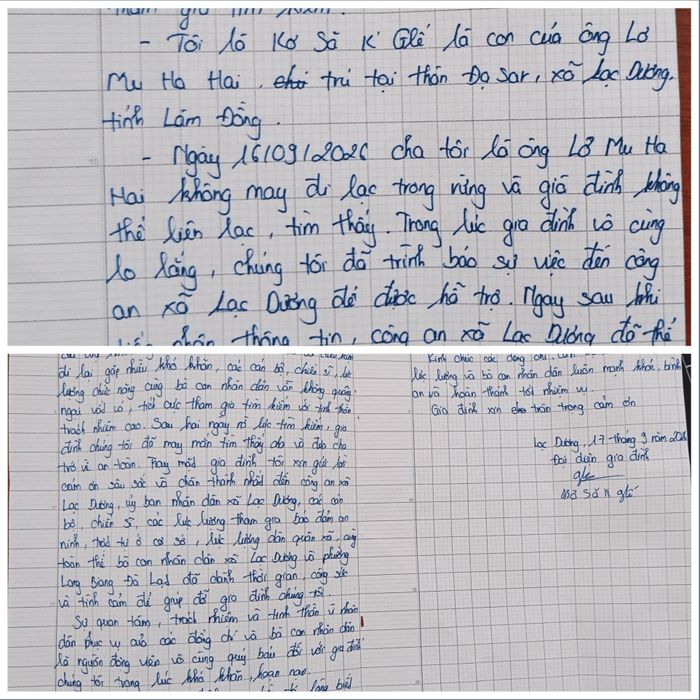 tham gia tìm kiếm.
- Tôi là Kơ Să K' Glế là con của ông Lơ
Mu Ha Hai. chú trú tại thôn Đạ Sar, xã Lạc Dương,
tỉnh Lâm Đồng.
- Ngày 16/09/2026 cha tôi là ông Lơ Mu Ha
Hai không may đi lạc trong rừng và gia đình không
thể liên lạc, tìm thấy. Trong lúc gia đình vô cùng
lo lắng, chúng tôi đã trình báo sự việc đến công
an xã Lạc Dương để được hỗ trợ. Ngay sau khi
nhận thông tin, công an xã Lạc Dương đã
đi lại gặp nhiều khó khăn, các cán bộ, chiến sĩ, lực
lượng chức năng cùng bà con nhân dân vẫn không quảng
ngại vất vả, tích cực tham gia tìm kiếm với tinh thần
trách nhiệm cao. Sau hai ngày nỗ lực tìm kiếm, gia
đình chúng tôi đã may mắn tìm thấy cha và đưa cha
trở về an toàn. Thay mặt gia đình tôi xin gửi lời
cảm ơn sâu sắc và chân thành nhất đến công an xã
Lạc Dương, ủy ban nhân dân xã Lạc Dương, các cán
bộ, chiến sĩ, các lực lượng tham gia bảo đảm an
ninh, trật tự ở cơ sở, lực lượng dân quân xã, cùng
toàn thể bà con nhân dân xã Lạc Dương và phường
Lang Biang Đà Lạt đã dành thời gian, công sức
và tình cảm để giúp đỡ gia đình chúng tôi.
Sự quan tâm, trách nhiệm và tinh thần vì nhân
dân phục vụ của các đồng chí và bà con nhân dân
là nguồn động viên vô cùng quý báu đối với gia đình
chúng tôi trong lúc khó khăn, hoạn nạn.
biết
Kính chúc các đồng chí,
lực lượng và bà con nhân dân luôn mạnh khỏe, bình
an và hoàn thành tốt nhiệm vụ.
Gia đình xin trân trọng cảm ơn
Lạc Dương, 17 tháng 9 năm
Đại diện gia đình
Să K' Glế